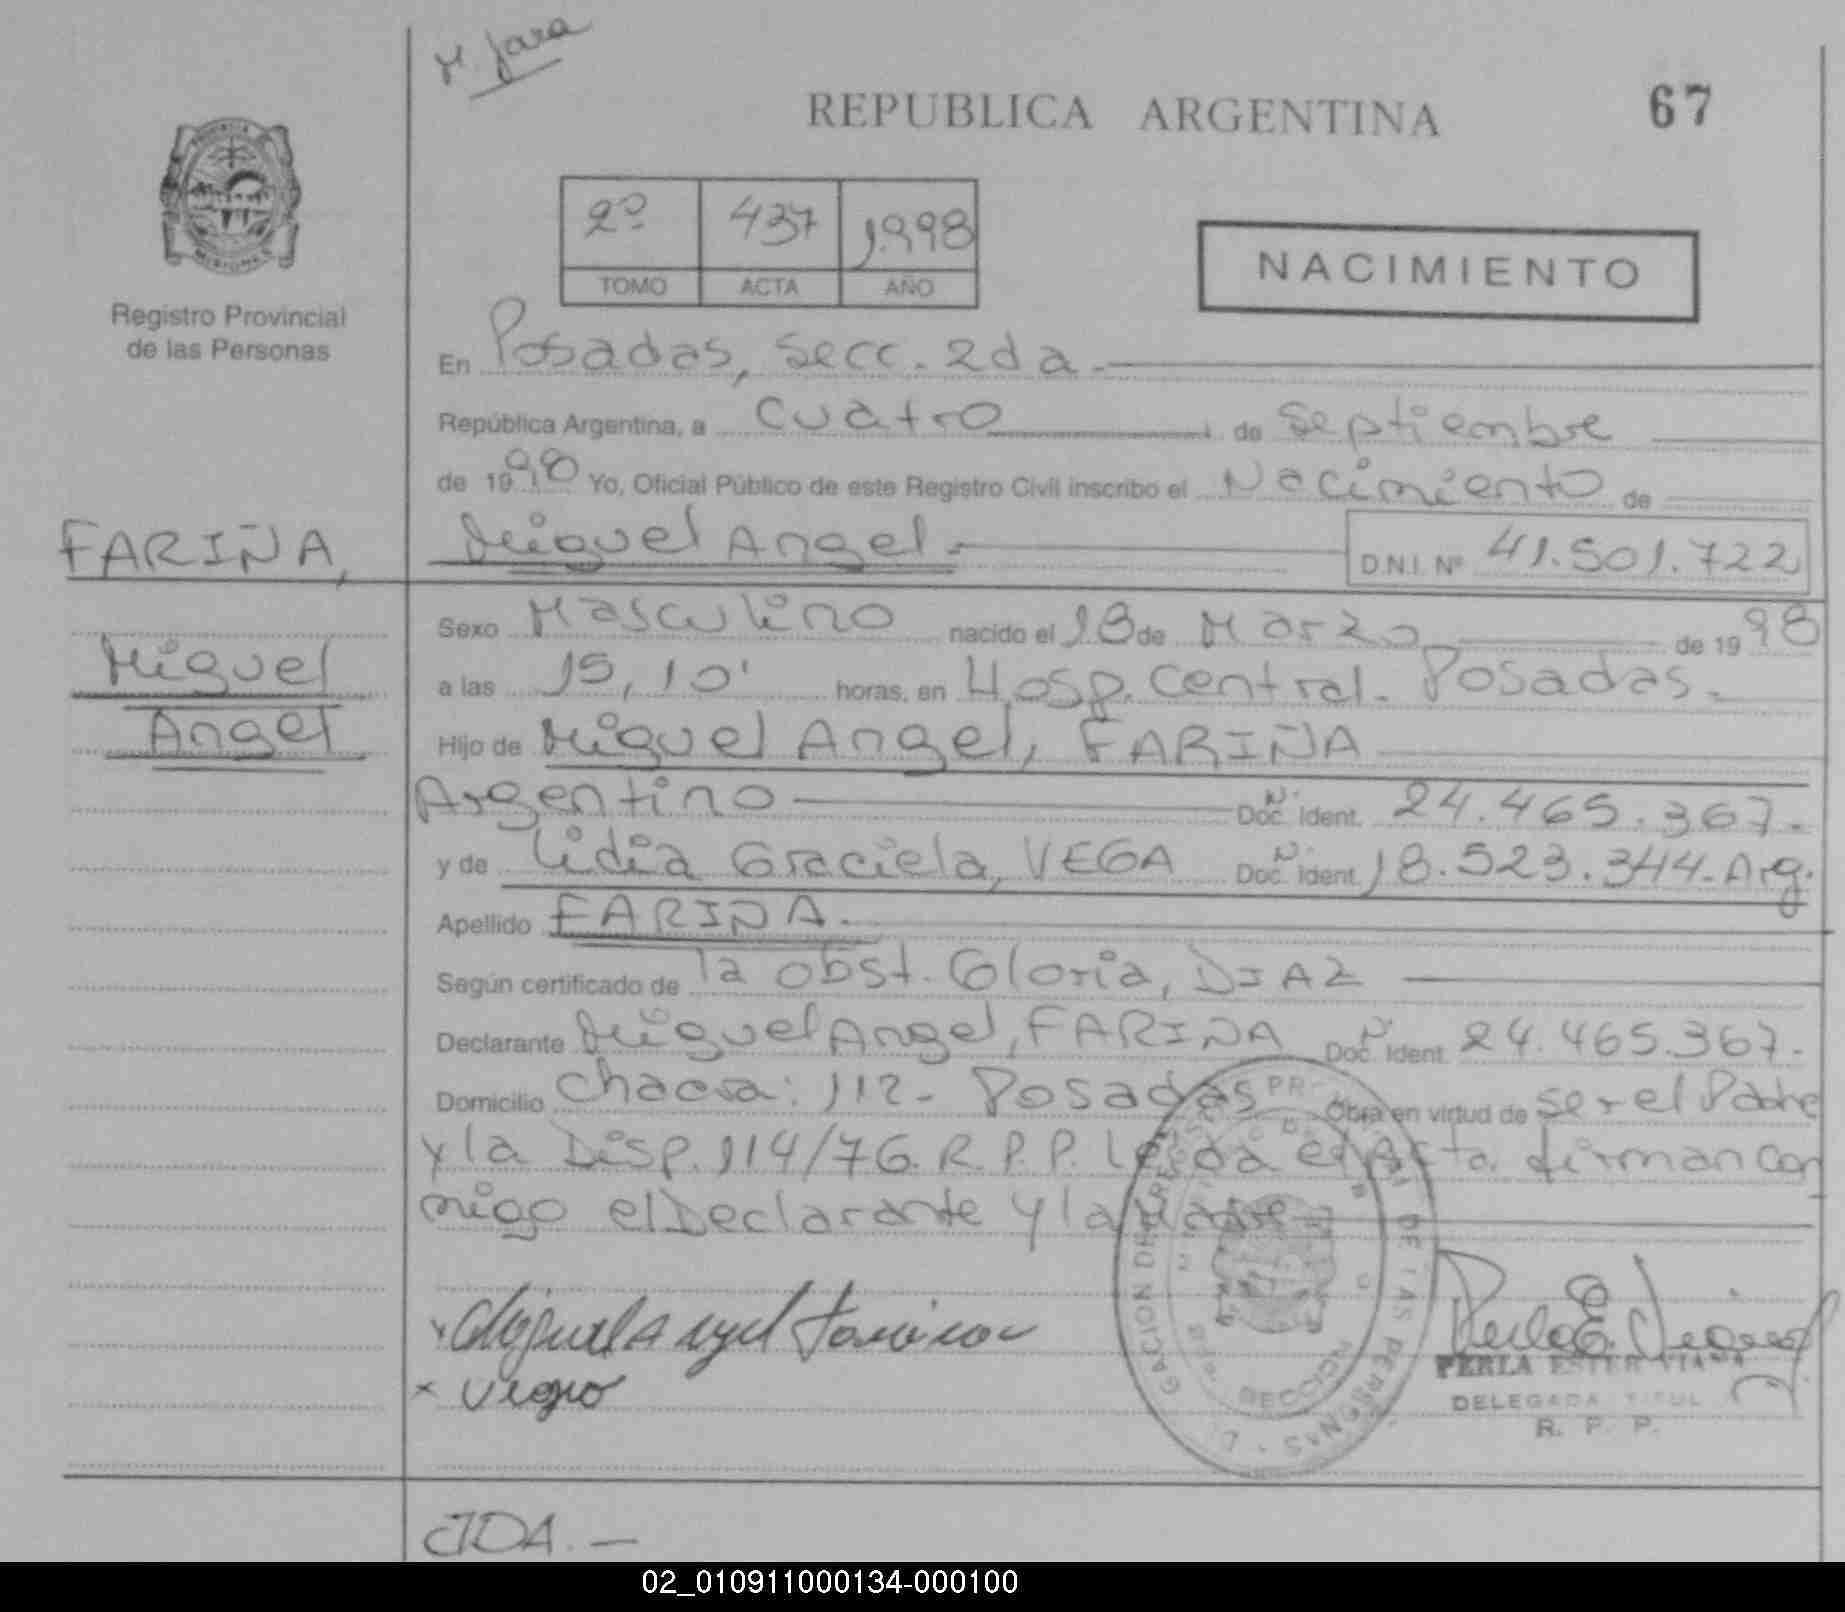 M. Jara
REPUBLICA ARGENTINA
67
2º 437 1.998
TOMO ACTA AÑO
NACIMIENTO
Registro Provincial
de las Personas
En Posadas, Secc. 2da.
República Argentina, a cuatro de Septiembre
de 1998 Yo, Oficial Público de este Registro Civil inscribo el Nacimiento de
FARIÑA, Miguel Angel. D.N.I. Nº 41.501.722
Miguel
Angel
Sexo Masculino nacido el 18 de Marzo de 1998
a las 15,10' horas, en Hosp. Central. Posadas.
Hijo de Miguel Angel, FARIÑA
Argentino Doc. N. Ident. 24.465.367.
y de Lidia Graciela, VEGA Doc. N. Ident. 18.523.344. Arg.
Apellido FARIÑA.
Según certificado de la obst. Gloria, DIAZ
Declarante Miguel Angel, FARIÑA Doc. N. Ident. 24.465.367.
Domicilio Chacra: 112- Posadas Obra en virtud de ser el Padre
y la Disp. 114/76. R.P.P. Leída el Acta. firman con
migo el Declarante y la Madre
Miguel Angel Farina
x Vega
PERLA ESTER
DELEGADA TITUL
R. P. P.
DE LAS PERSONAS
SECCION
02_010911000134-000100